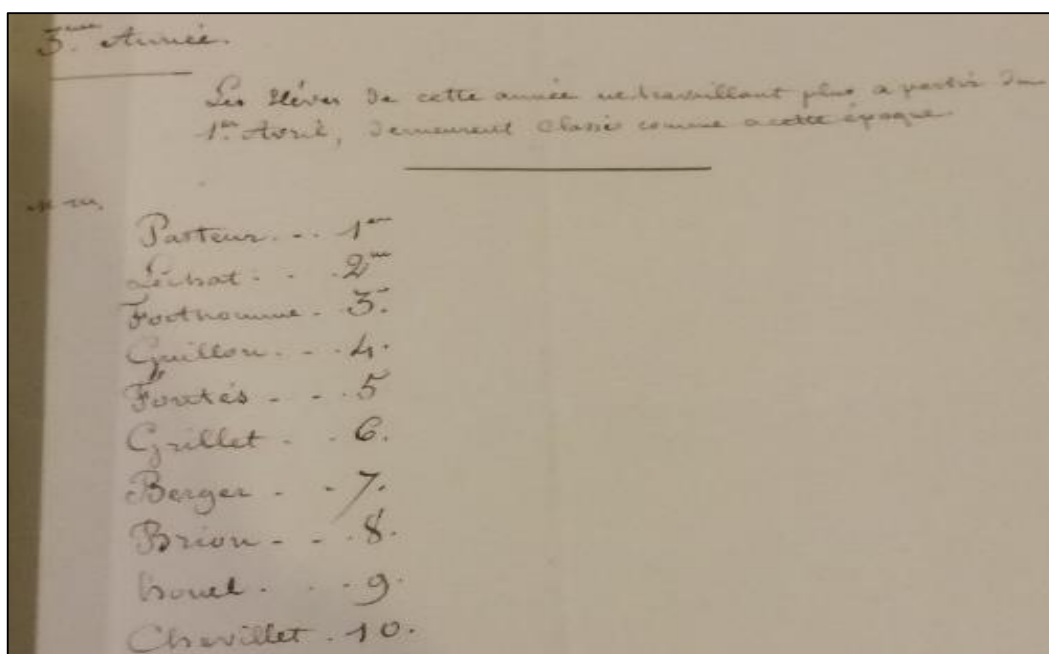 3.me Année.
Les Elèves de cette année ne travaillant plus a partir du
1.er Avril, demeurent classés comme a cette époque.
M.M.
Pasteur. .. 1er
Lechat. . . 2me
Foothomme. 3.
Guillon. .. 4.
Fontés - - . 5
Grillet - . 6.
Berger - - 7.
Brion - - . 8.
houel . . . 9.
Chevillet . 10.